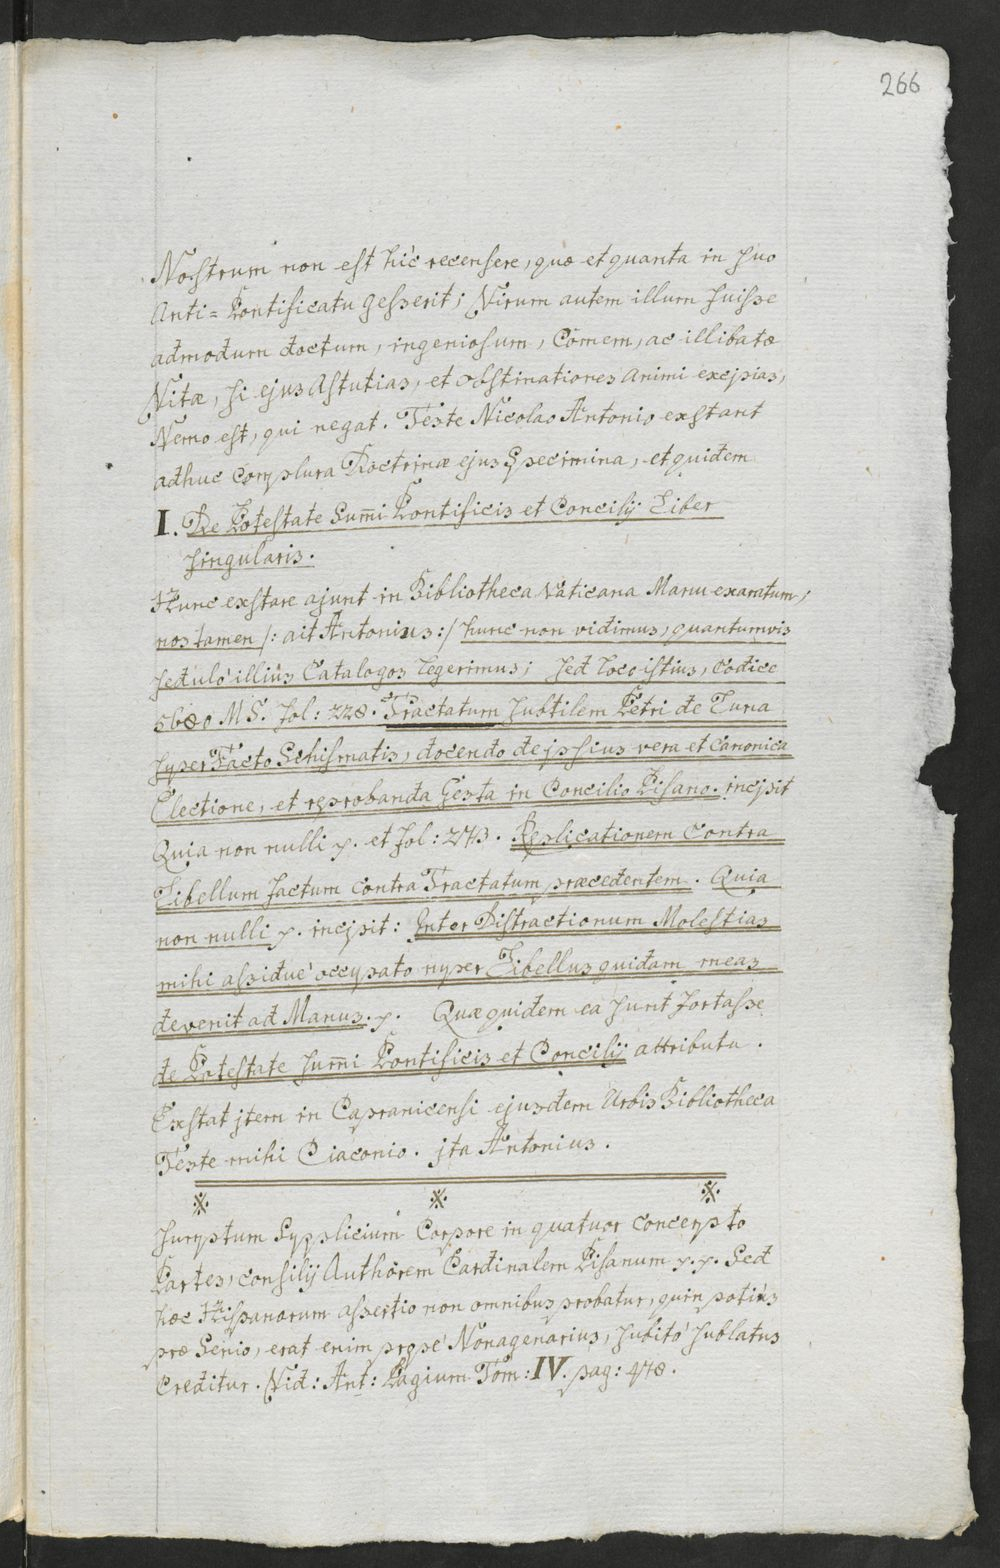 266
Nostrum non est hic recensere, quæ et quanta in suo
Anti=Pontificatu gesserit; Virum autem illum fuisse
admodum doctum, ingeniosum, Comem, ac illibatæ
Vitæ, si ejus Astutias, et obstinationes animi excipias,
Nemo est, qui negat. Teste Nicolao Antonio exstant
adhuc complura Doctrinæ ejus Specimina, et quidem
I. De Potestate Sum̄i Pontificis et Concilij Liber
singularis.
Hunc exstare ajunt in Bibliotheca Vaticana Manu exaratum,
nos tamen /: ait Antonius :/ hunc non vidimus, quantumvis
sedulò illius Catalogos legerimus; sed loco istius, Codice
MS. fol: 228. Tractatum subtilem Petri de Luna
super Facto Schismatis, docendo de ipsius vera et Canonica
Electione, et reprobanda Gesta in Concilio Pisano. incipit
Quia non nulli p. et fol: 273. Replicationem Contra
Libellum factum contra Tractatum præcedentem. Quia
non nulli p. incipit: Inter Distractionum Molestias
mihi assiduè occupato nuper Libellus quidam meas
devenit ad Manus. p. Quæ quidem ea sunt fortasse
de Potestate sum̄i Pontificis et Concilij attributa.
Exstat jtem in Capranicensi ejusdem Urbis Bibliotheca
Teste mihi Ciaconio. jta Antonius.
※ ※ ※
sumptum Supplicium Corpore in quatuor concerpto
Partes, consilij Authorem Cardinalem Pisanum p. p. Sed
hæc Hispanorum assertio non omnibus probatur, quin potiùs
præ Senio, erat enim propè Nonagenarius, subitò sublatus
Creditur. Vid: Ant: Pagium Tom: IV. pag: 478.